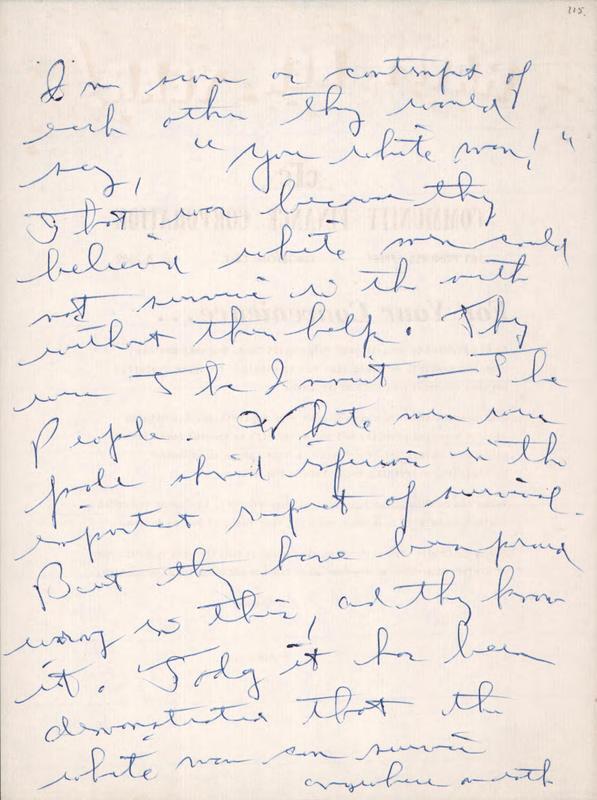 215.
In scorn or contempt of
each other they would
say, "you white man!"
That was because they
believed white men could
not survive in the north
without their help. They
were The Inuit — The
People. White men were
pale skined inferior in the
important respect of survival.
But they have been proved
wrong in this, and they know
it. Today it has been
demonstrated that the
white man can survive
anywhere on earth
COMMUNITY FINANCE CORPORATION
For Your Convenience...